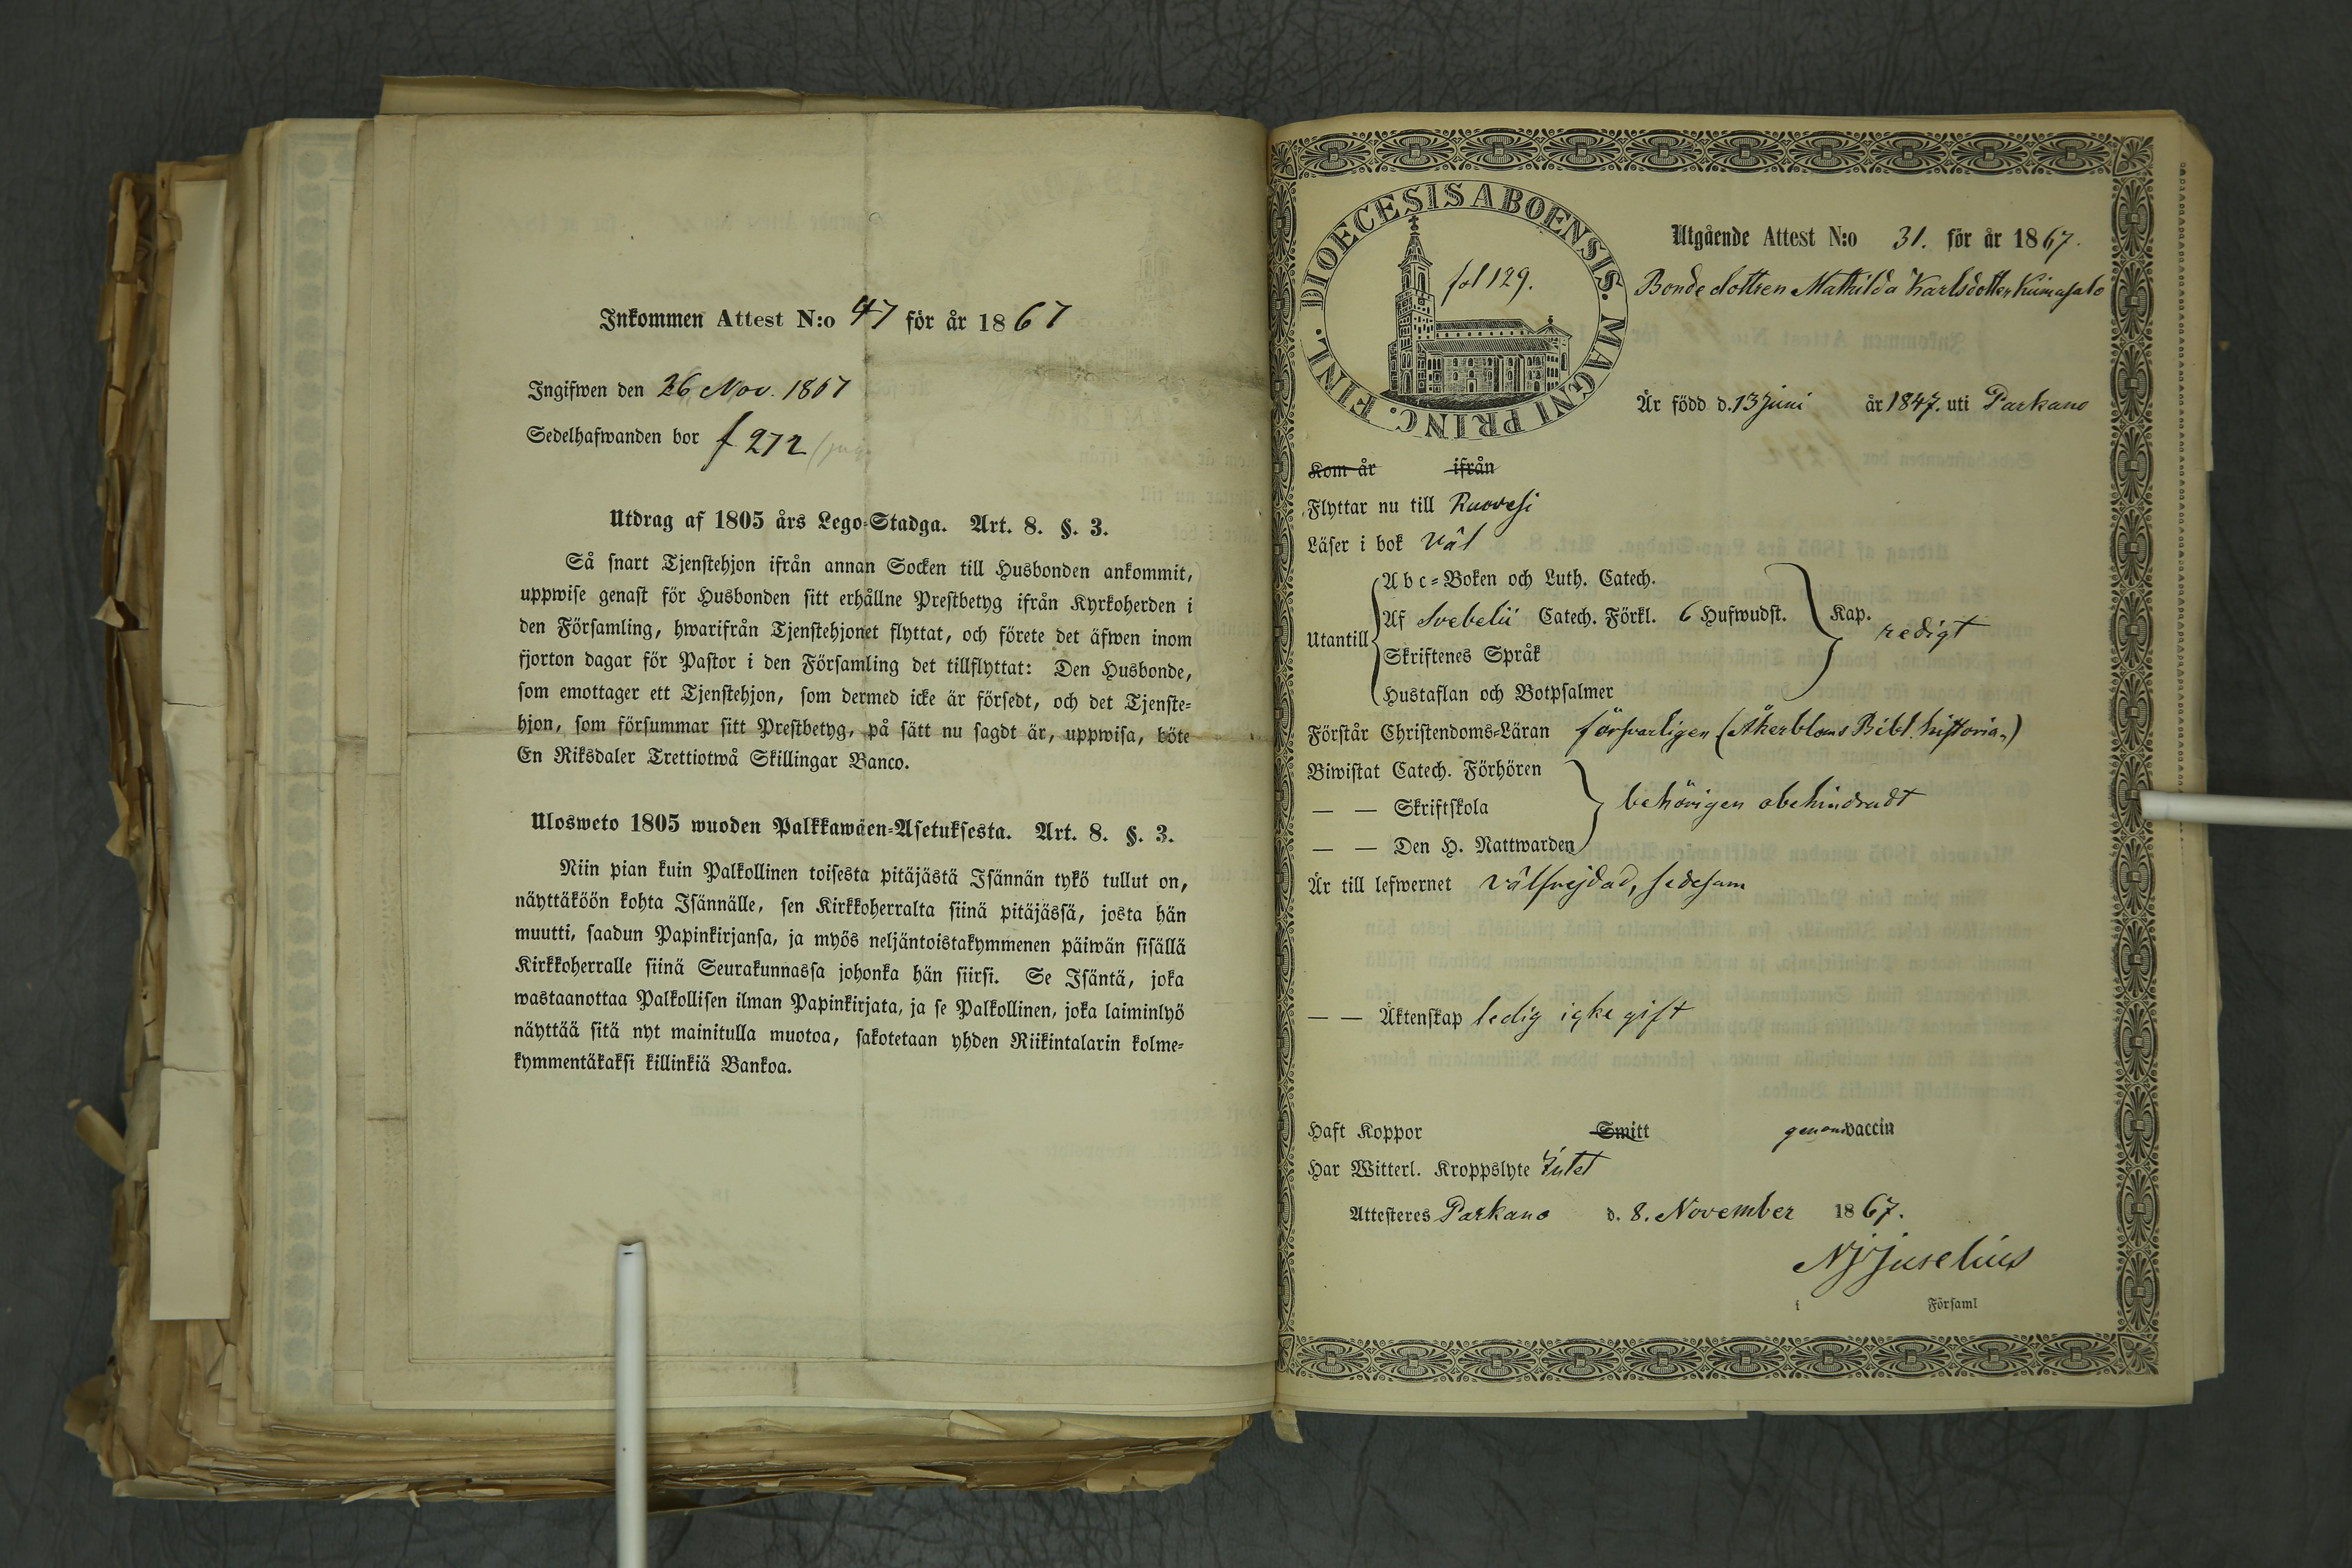 Inkommen Attest N:o 47 för år 1867
Ingifwen den 26 Nov. 1867
Sedelhafwanden bor f 272
Utdrag af 1805 års Lego-Stadga. Art. 8. §. 3.
Så snart Tjenstehjon ifrån annan Socken till Husbonden ankommit,
uppwise genast för Husbonden sitt erhållne Prestbetyg ifrån Kyrkoherden i
den Församling, hwarifrån Tjenstehjonet flyttat, och förete det äfwen inom
fjorton dagar för Pastor i den Församling det tillflyttat: Den Husbonde,
som emottager ett Tjenstehjon, som dermed icke är försedt, och det Tjenste-
hjon, som försummar sitt Prestbetyg, på sätt nu sagdt är, uppwisa, böte
En Riksdaler Trettiotwå Skillingar Banco.
Ulosweto 1805 wuoden Palkkawäen-Asetuksesta. Art. 8. §. 3.
Niin pian kuin Palkollinen toisesta pitäjästä Isännän tykö tullut on,
näyttäköön kohta Isännälle, sen Kirkkoherralta siinä pitäjässä, josta hän
muutti, saadun Papinkirjansa, ja myös neljäntoistakymmenen päiwän sisällä
Kirkkoherralle siinä Seurakunnassa johonka hän siirsi. Se Isäntä, joka
wastaanottaa Palkollisen ilman Papinkirjata, ja se Palkollinen, joka laiminlyö
näyttää sitä nyt mainitulla muotoa, sakotetaan yhden Riikintalarin kolme-
kymmentäkaksi killinkiä Bankoa.
DIOECESIS ABOENSIS. MAGNI PRINC. FINL.
fol 129.
Utgående Attest N:o 31. för år 1867.
Bondedottren Mathilda Karlsdotter
Är född d. 13 Juni år 1847. uti Parkano
Kom år ifrån
Flyttar nu till Ruovesi
Läser i bok väl
Abc-Boken och Luth. Catech.
Utantill Af Svebelii Catech. Förkl. 6 Hufwudst. Kap. redigt
Skriftenes Språk
Hustaflan och Botpsalmer
Förstår Christendoms-Läran försvarligen (Åkerbloms Bibl. historia.)
Biwistat Catech. Förhören
— — Skriftskola behörigen obehindradt
— — Den H. Nattwarden
Är till lefwernet välfrejdad, sedesam
— — Äktenskap ledig icke gift
Haft Koppor Smitt genom vaccin
Har Witterl. Kroppslyte Intet
Attesteres Parkano d. 8. November 1867.
NJ Juselius
i Församl